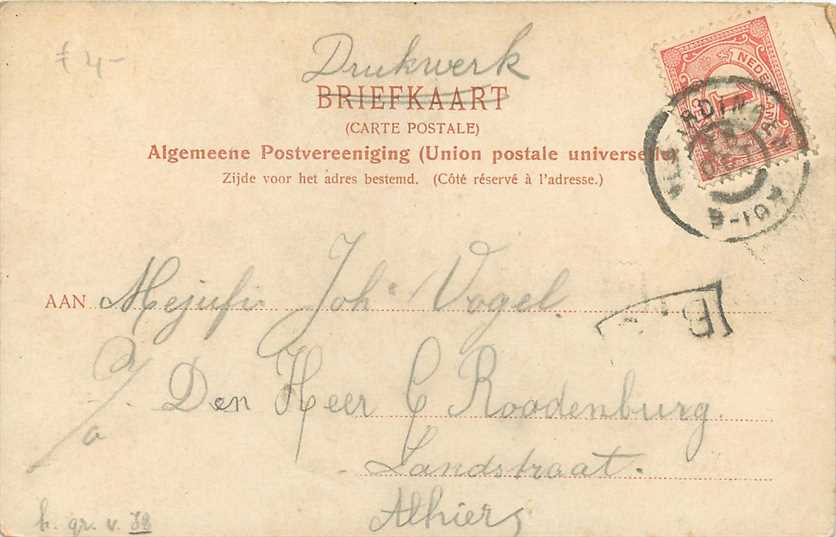 f 4-
Drukwerk
BRIEFKAART
(CARTE POSTALE)
Algemeene Postvereeniging (Union postale universelle
Zijde voor het adres bestemd. (Côté réservé à l'adresse.)
NEDERLAND
1
VLAARDINGEN
AAN Mejufr Joh. Vogel
p/a Den Heer C Roodenburg.
Landstraat.
Alhier
h. gr. v.